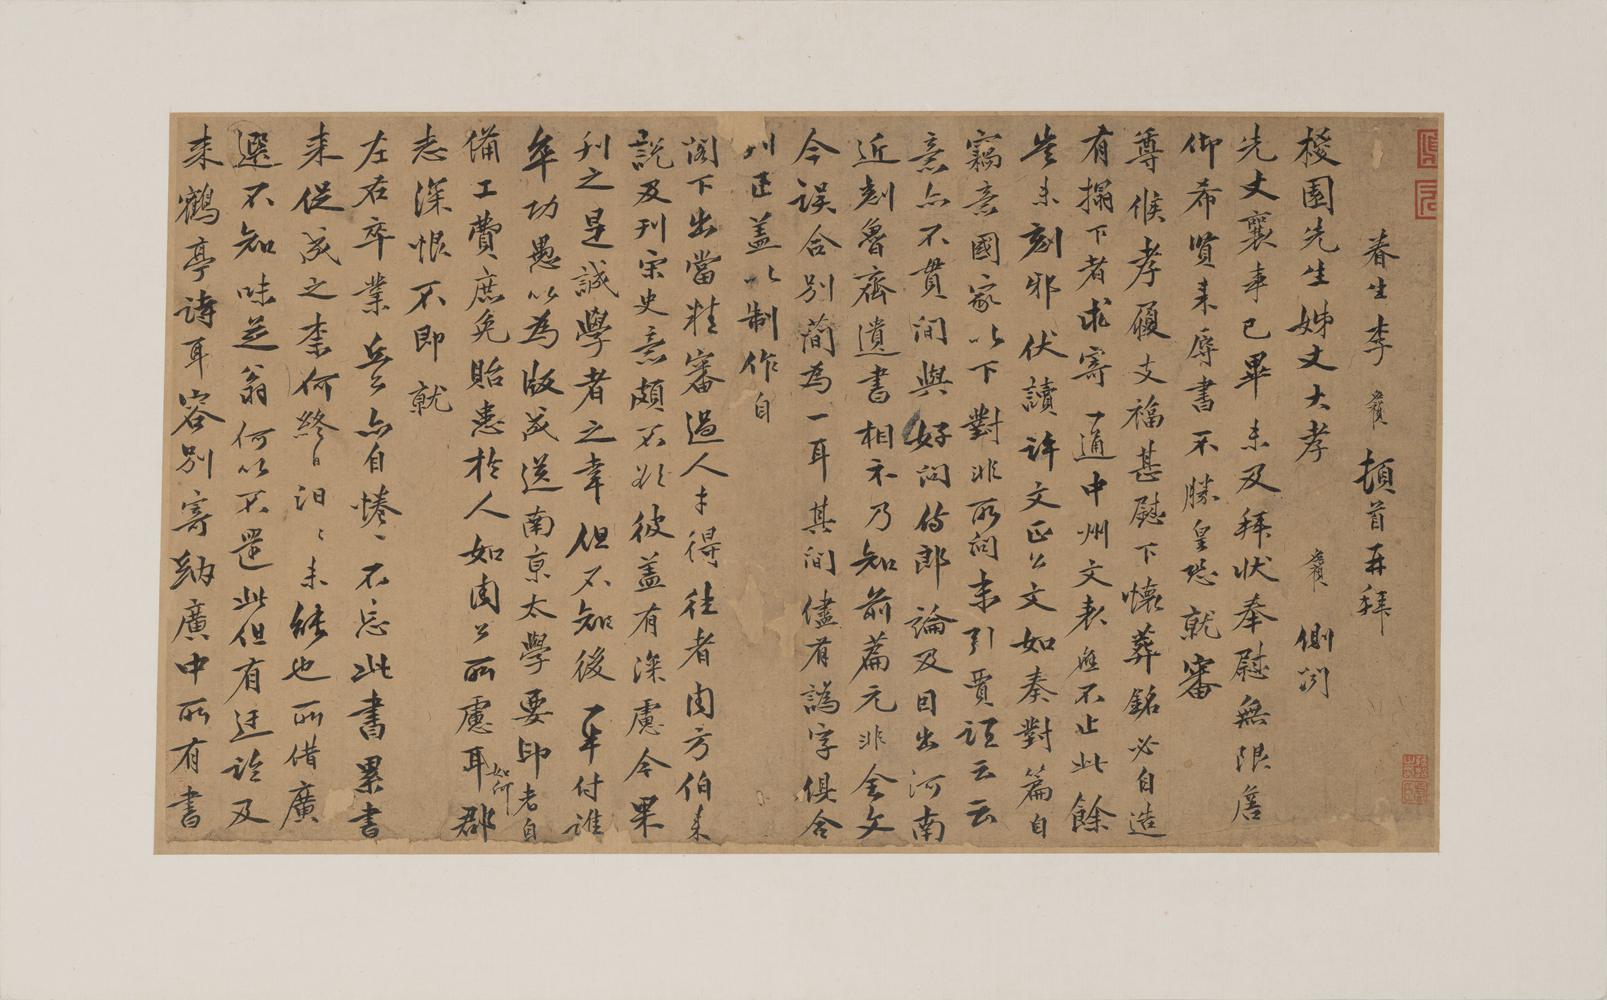 眷生李 頓首再拜
梭園先生姊丈大孝 側聞
先丈襄事已畢未及拜状奉慰無限詹
仰希賢来辱書不勝皇恐就審
尊候孝履支福甚慰下懷葬銘必自造
有搨下者求寄一通中州文表應不止此餘
豈未刻邪伏讀許文正公文如奏對篇自
竊意國家以下對非所問末引賈誼云云
意亦不貫間與好問侍郎論及因出河南
近刻魯齋遺書相示乃知前篇元非全文
今誤合别簡為一耳其間儘有譌字俱合
刊正蓋以制作自
閣下出當精審過人才得往者周方伯来
説及刊宋史意頗不欲彼蓋有深慮今果
刊之是誠學者之幸但不知後一年付誰
卒功愚以為版成送南京太學要印者自
備工費庶免貽患於人如周公所慮耳如何郡
志深恨不即就
左右卒業岳公亦自惓惓不忘此書累書
来促成之柰何終日汩汩未能也所借廣
選不知味芝翁何以不還此但有迂論及
来鶴亭詩耳容别寄納廣中所有書